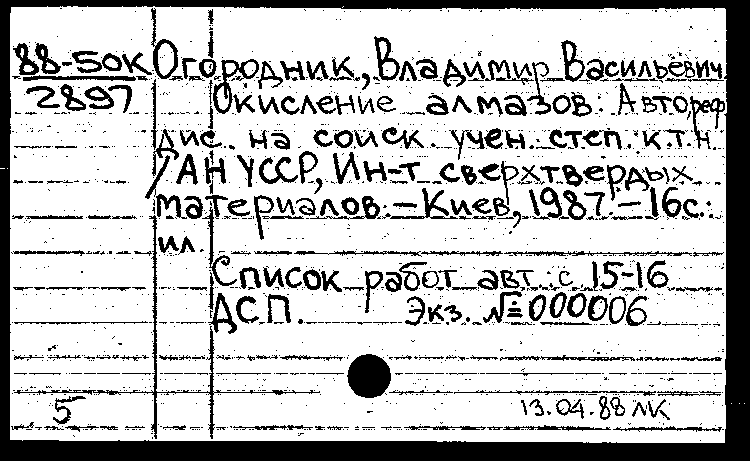 88-50К Огородник, Владимир Васильевич
2897 Окисление алмазов: Автореф
дис. на соиск. учен. степ. к.т.н.
/ АН УССР, Ин-т сверхтвердых
материалов. – Киев, 1987. – 16с.:
ил.
Список работ авт. с 15-16
ДСП. Экз. № 000006
5 13.04.88 МК